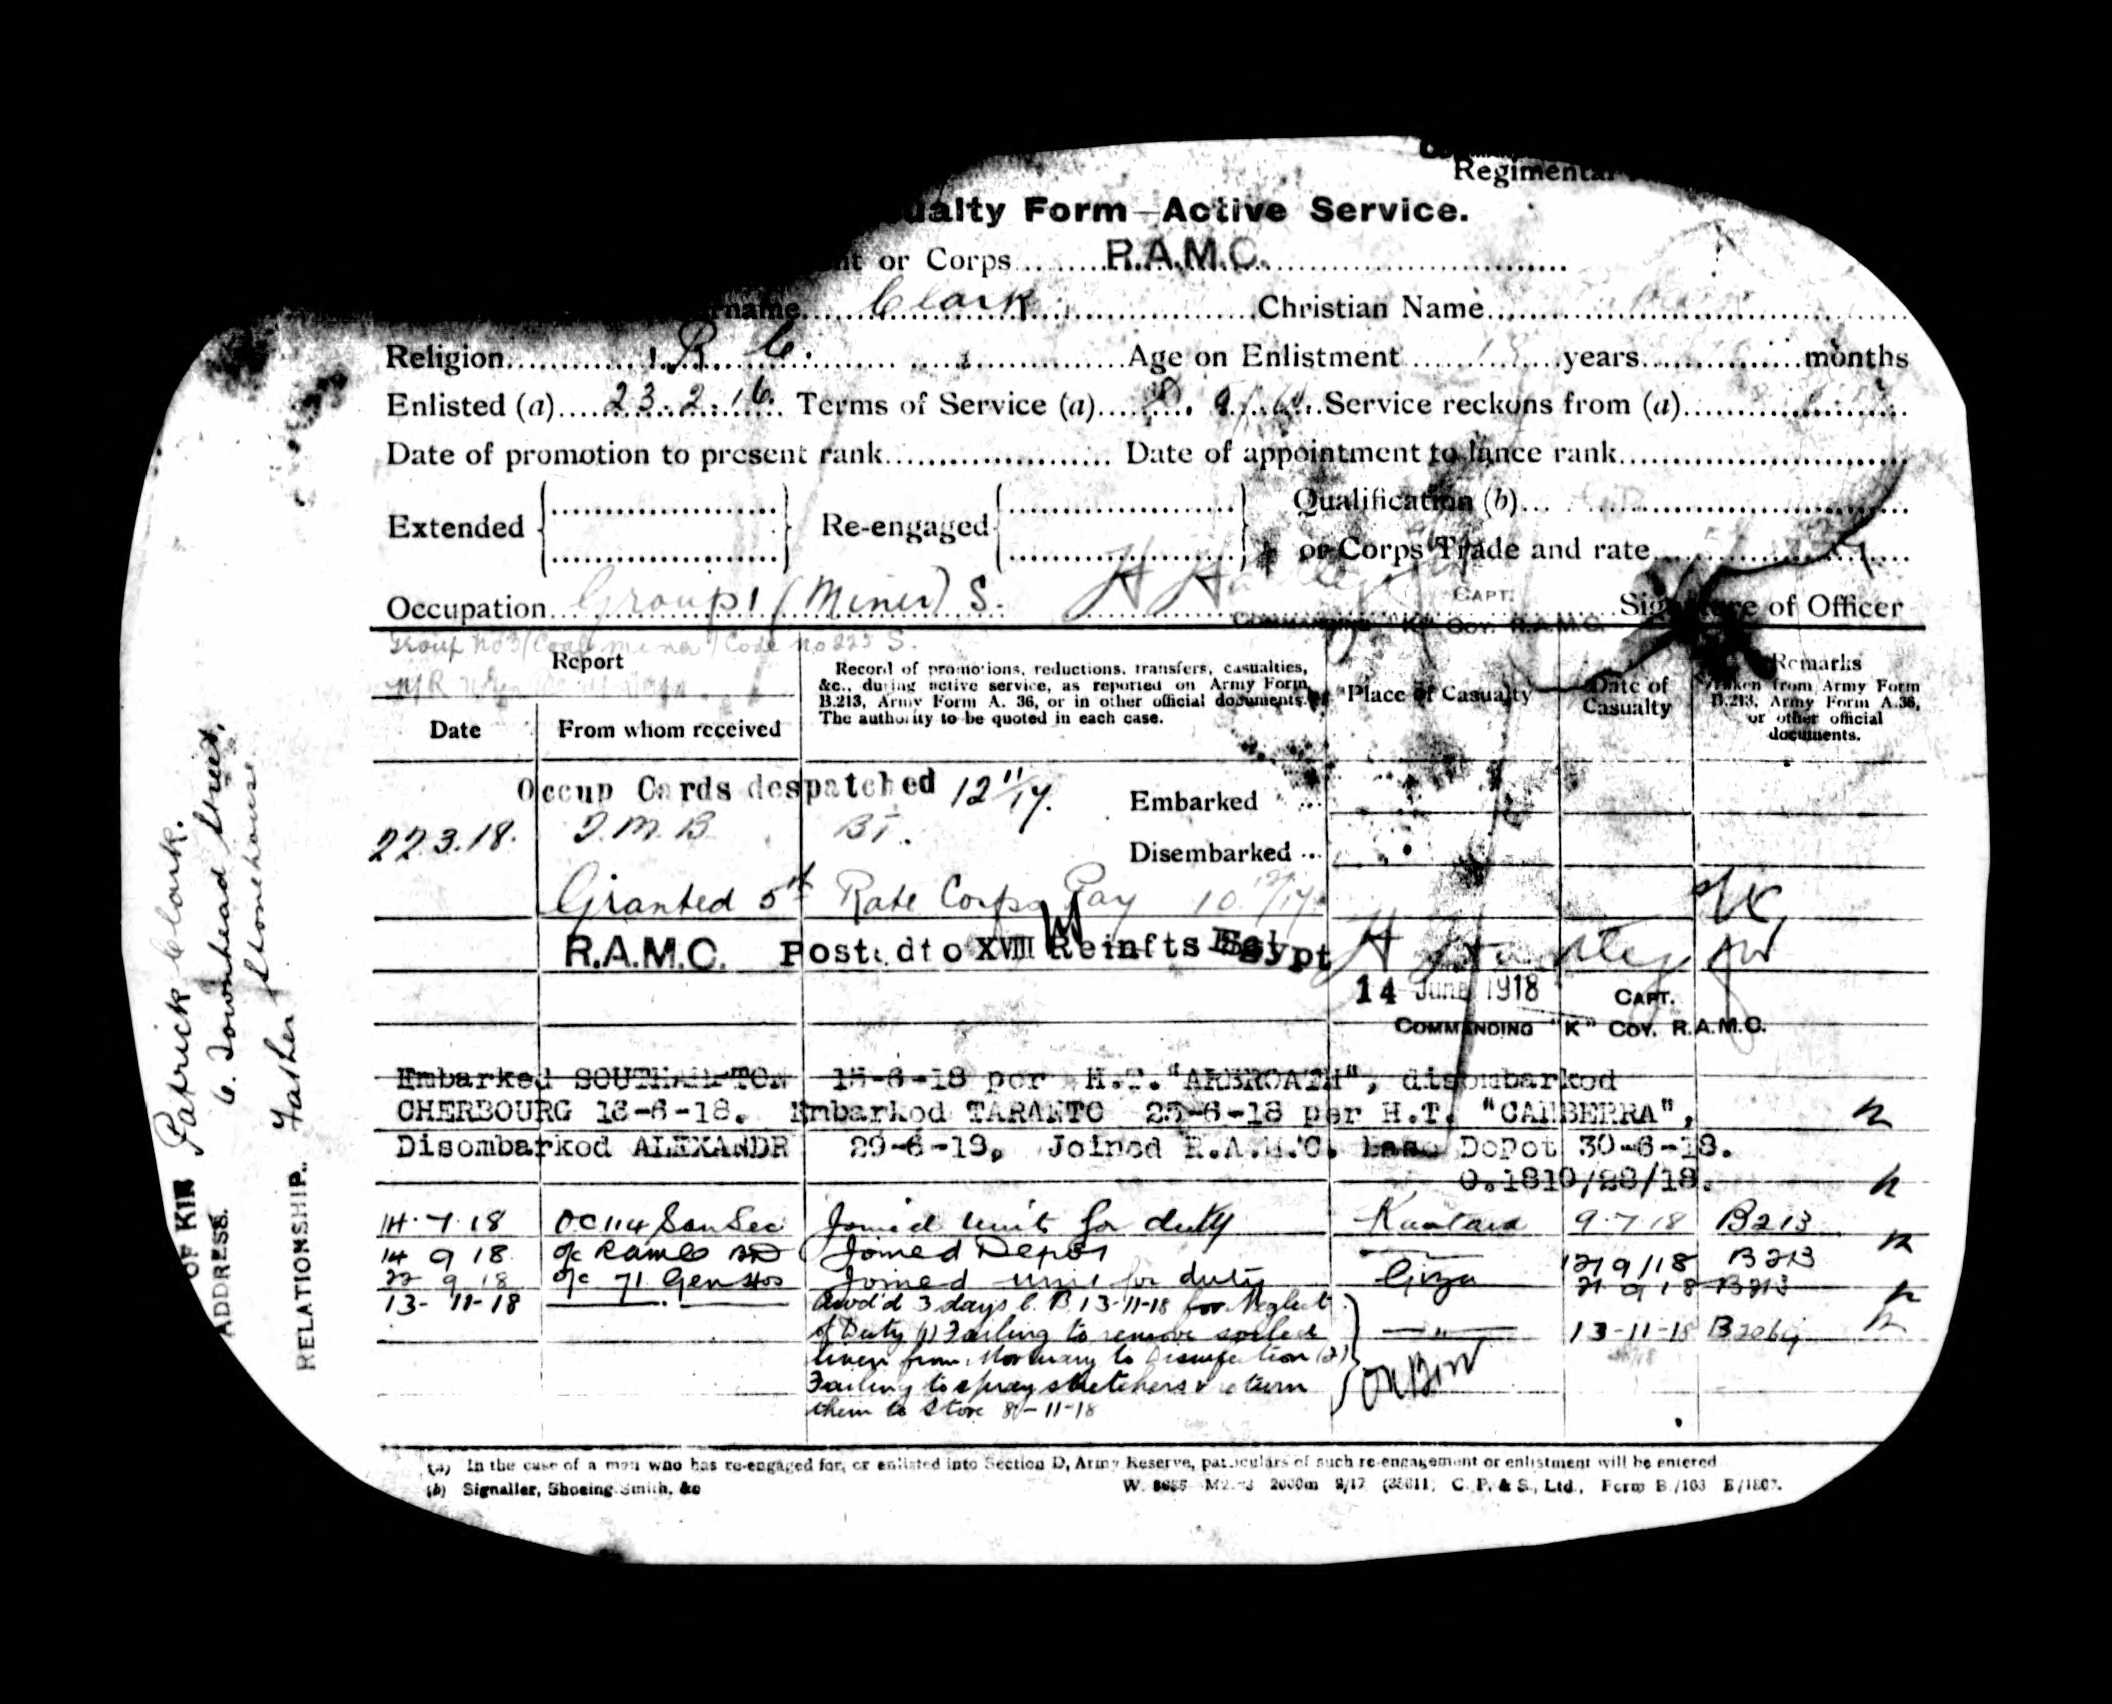 Regimental
ualty Form—Active Service.
nt or Corps R.A.M.C.
rname Clark Christian Name
Religion R. C. Age on Enlistment years months
Enlisted (a) 23.2.16. Terms of Service (a) Service reckons from (a)
Date of promotion to present rank Date of appointment to lance rank
Extended Re-engaged Qualification (b)
or Corps Trade and rate
Occupation Group 1 (Miner) S. CAPT. Signature of Officer
COMMANDING "K" COY. R.A.M.C.
Group No 3 (Coal miner) Code no 223 S.
Report
Record of promotions, reductions, transfers, casualties, &c., during active service, as reported on Army Form B.213, Army Form A. 36, or in other official documents. The authority to be quoted in each case.
Place of Casualty
Date of Casualty
Remarks
Taken from Army Form B.213, Army Form A.36, or other official documents.
Date From whom received
Occup Cards despatched 12/11/17. Embarked ...
22.3.18. T.M.B BT. Disembarked ...
Granted 5th Rate Corps Pay 10
R.A.M.C. Posted to XVIII Reinfts Egypt
14 June 1918 CAPT.
COMMANDING "K" COY. R.A.M.C.
Embarked SOUTHAMPTON 15-6-18 per H.T."ARBROATH", disembarked
CHERBOURG 16-6-18. Embarked TARANTO 25-6-18 per H.T. "CANBERRA",
Disembarked ALEXANDR 29-6-18, Joined R.A.M.C. Base Depot 30-6-18.
O.1810/28/18.
14.7.18 OC 114 San Sec Joined unit for duty Kantara 9.7.18 B213
14 9 18 o/c RAMC BD Joined Depot 12/9/18 B213
22 9 18 o/c 71 Gen Hos Joined unit for duty Giza 21 9 18 B213
13-11-18 Awd'd 3 days C.B. 13-11-18 for Neglect
of Duty (1) Failing to remove soiled — " — 13-11-18 B2069
linen from Mortuary to Disinfection (2)
Failing to spray stretchers & return
them to Store 8-11-18
(a) In the case of a man who has re-engaged for, or enlisted into Section D, Army Reserve, particulars of such re-engagement or enlistment will be entered
(b) Signaller, Shoeing Smith, &c
C. P. & S., Ltd., Form B./103
OF KIN Patrick Clark.
ADDRESS. 6. Townhead Street,
Stonehouse
RELATIONSHIP. Father